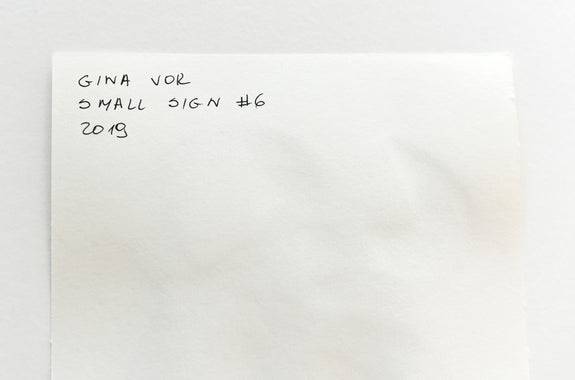 GINA VOR
SMALL SIGN #6
2019